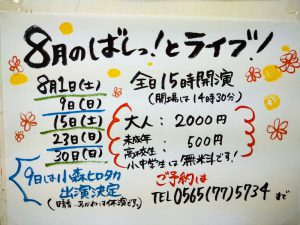 8月のばしっ!とライブ!
8月1日(土)
9日(日)
15日(土)
23日(日)
30日(日)
全日15時開演
(開場は14時30分)
大人:2000円
未成年
高校生:500円
小中学生は無料です!
9日は小森ヒロタカ
出演決定
ご予約は
TEL0565(77)5734まで